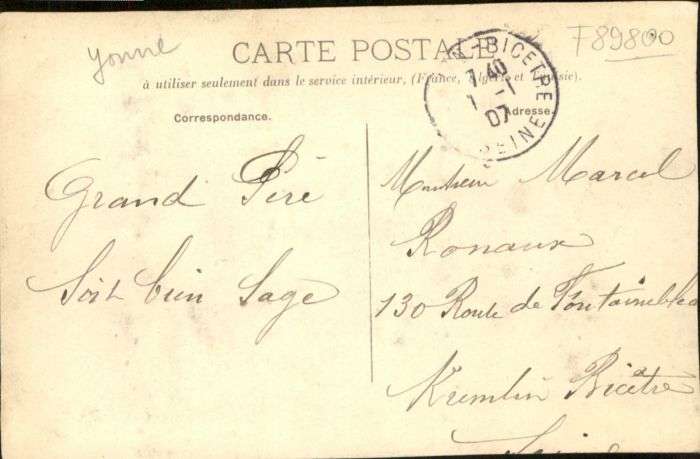 Yonne
F89800
CARTE POSTALE
à utiliser seulement dans le service intérieur, (France, Algérie et Tunisie).
N-BICETRE
7 40
1 -1
07
SEINE
Correspondance.
Grand Péré
Soit bien Sage
Adresse.
Monsieur Marcel
Ronaux
130 Route de Fontainebleau
Kremlin Bicêtre
Seine